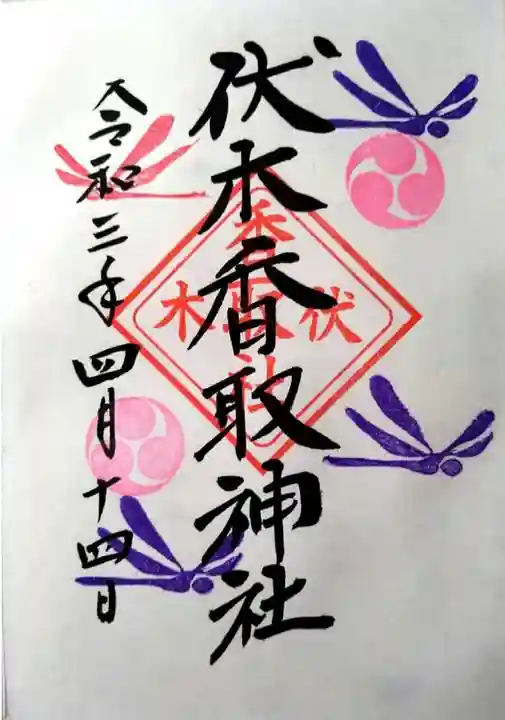 伏木香取神社
令和三年四月十四日
伏木
香取神社